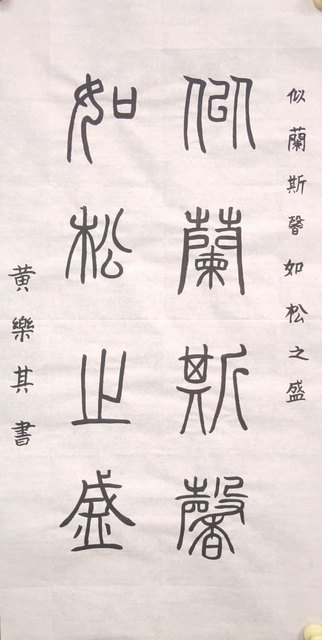 似蘭斯馨如松之盛
似蘭斯馨
如松之盛
黄樂其書